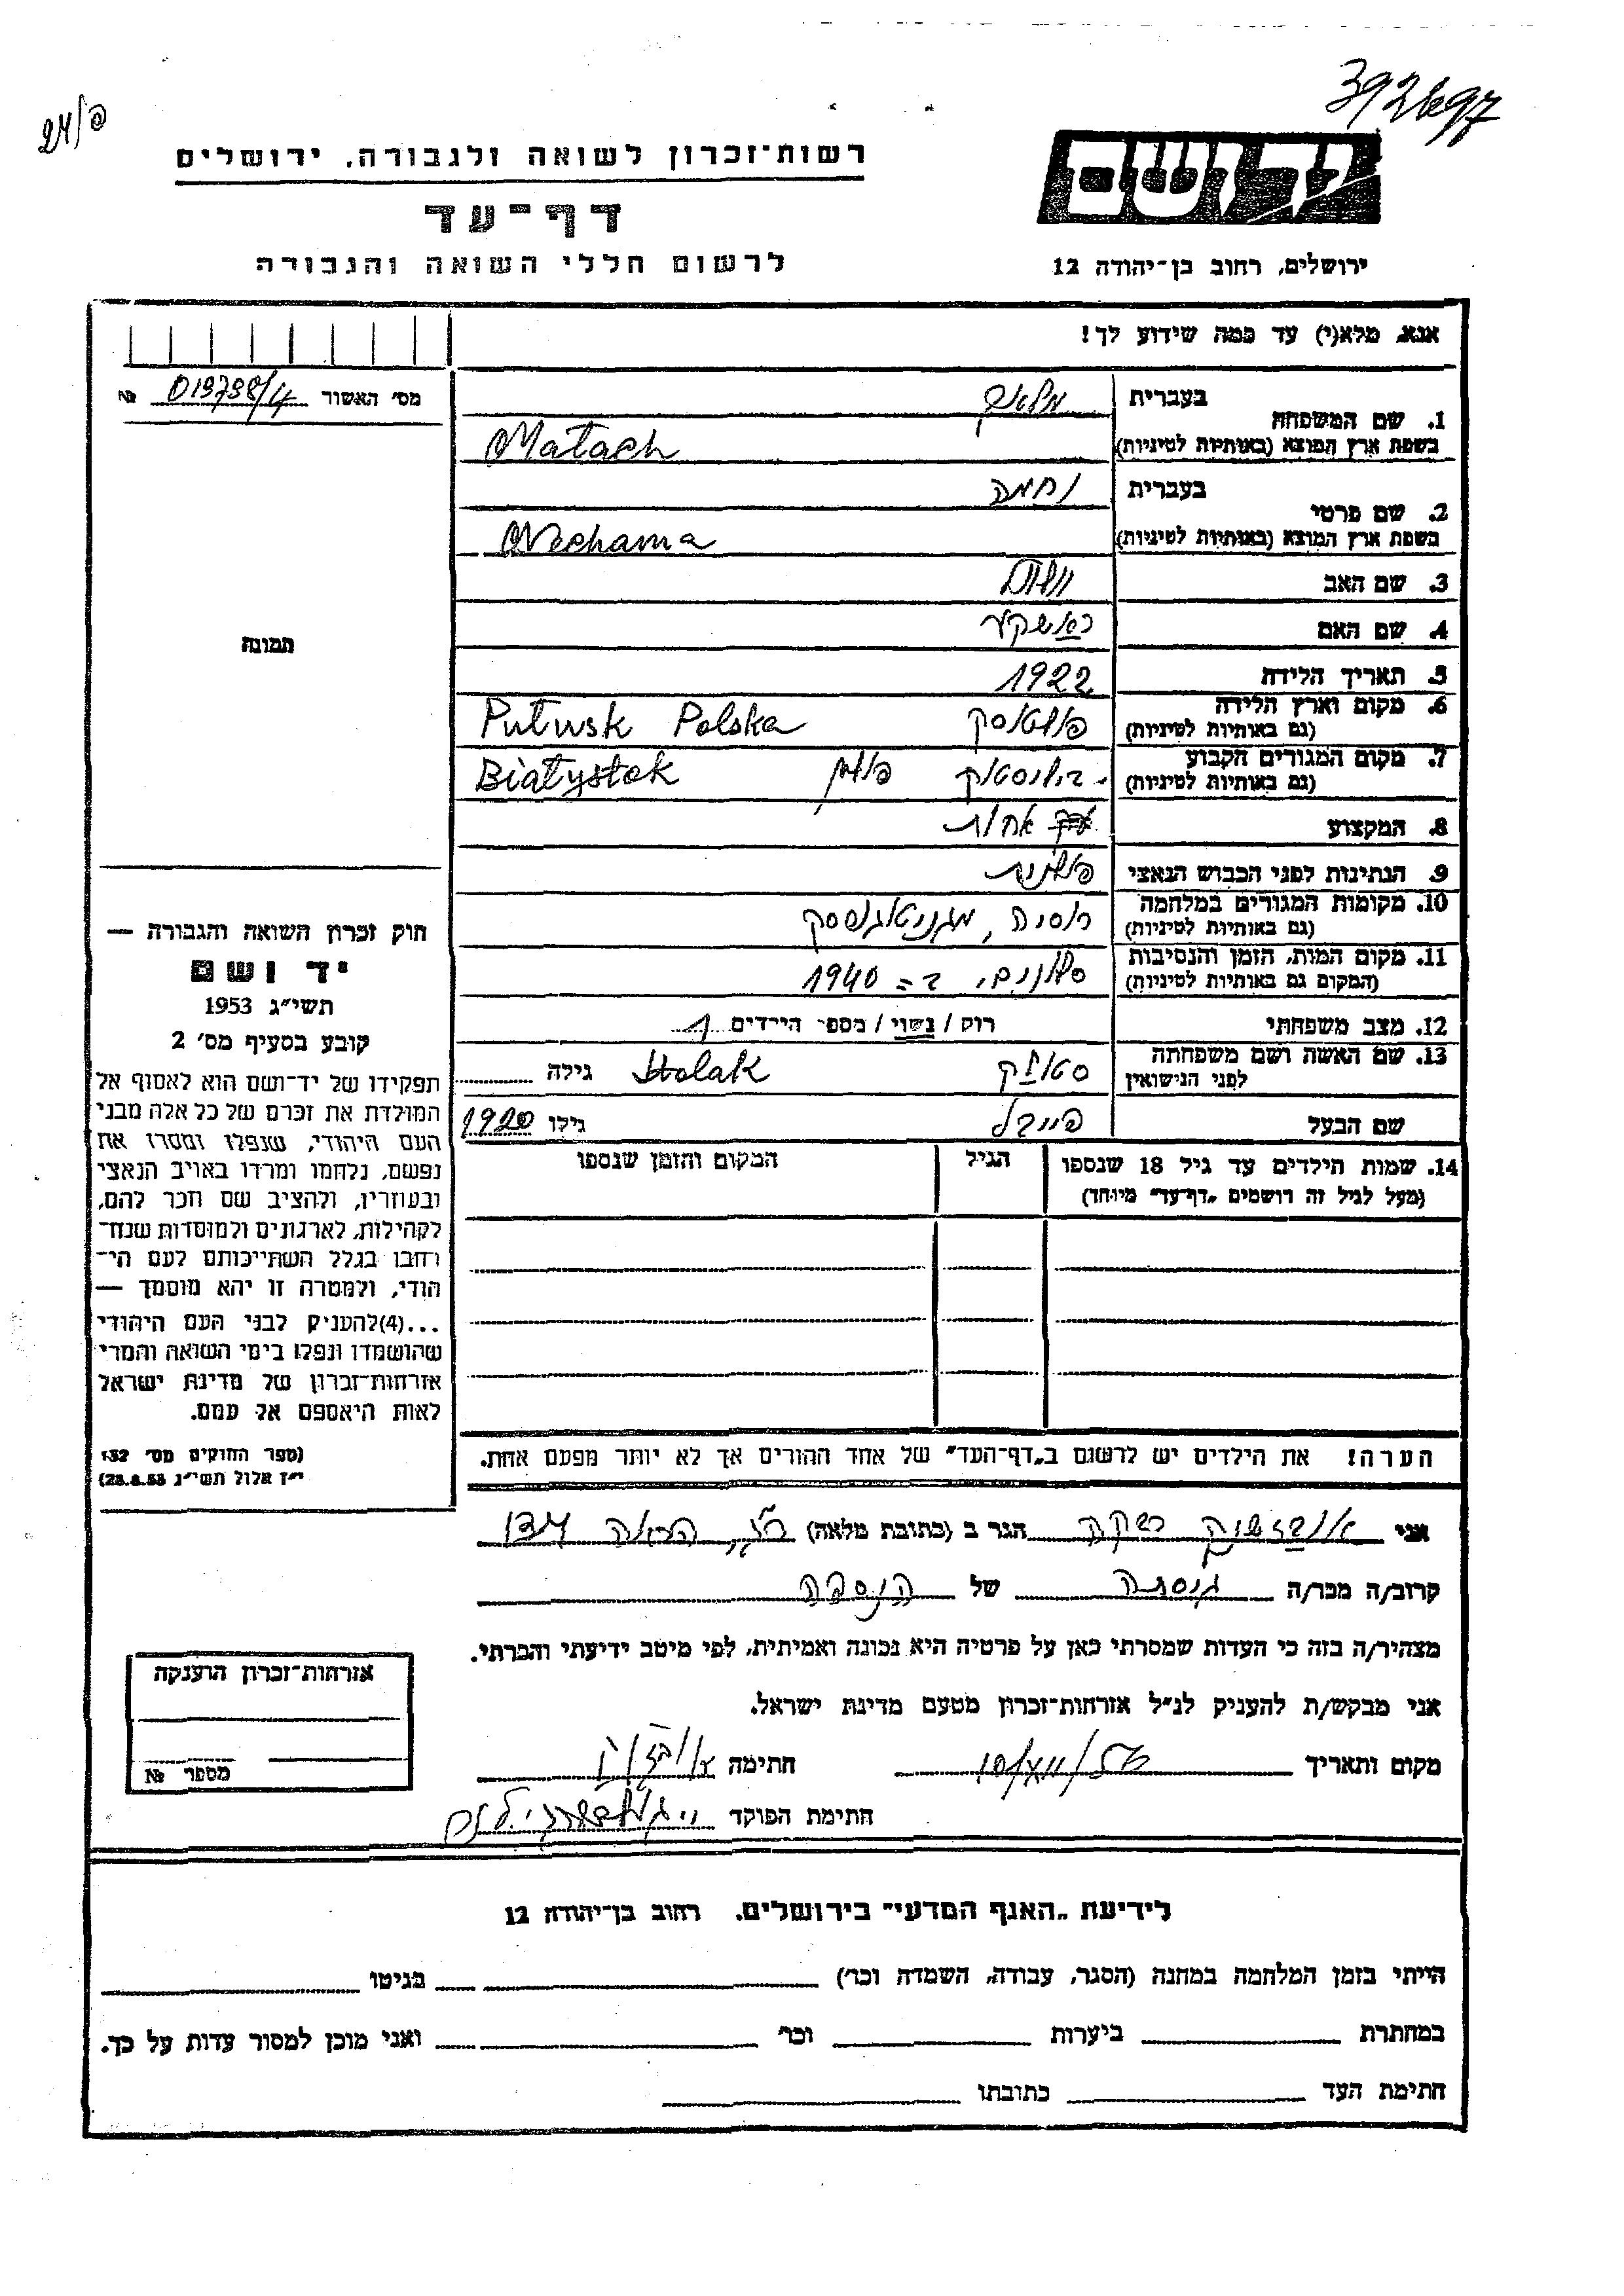 392697
רשות־זכרון לשואה ולגבורה, ירושלים
דף־עד
לרשום חללי השואה והגבורה
יד ושם
ירושלים, רחוב בן־יהודה 12
אנא, מלא(י) עד כמה שידוע לך!
מס' האשור 019798/4 №
1. שם המשפחה
בעברית
בשפת ארץ המוצא (באותיות לטיניות) Matach
2. שם פרטי
בעברית נחמה
בשפת ארץ המוצא (באותיות לטיניות) Nechama
3. שם האב
4. שם האם ראשקע
5. תאריך הלידה 1922
6. מקום וארץ הלידה
(גם באותיות לטיניות) פולטוסק Putusk Polska
7. מקום המגורים הקבוע
(גם באותיות לטיניות) ביאליסטוק פולין Białystok
8. המקצוע אחות
9. הנתינות לפני הכבוש הנאצי פולנית
10. מקומות המגורים במלחמה
(גם באותיות לטיניות) רוסיה, מגניטוגורסק
11. מקום המות, הזמן והנסיבות
(המקום גם באותיות לטיניות) סלונים, ב= 1940
12. מצב משפחתי רוק / נשוי / מספר הילדים 1
13. שם האשה ושם משפחתה
לפני הנישואין Stolak גילה
שם הבעל פייבל גילו 1920
14. שמות הילדים עד גיל 18 שנספו
(מעל לגיל זה רושמים „דף־עד" מיוחד)
הגיל
המקום והזמן שנספו
הערה! את הילדים יש לרשום ב„דף־העד" של אחד ההורים אך לא יותר מפעם אחת.
תמונה
חוק זכרון השואה והגבורה —
יד ושם
תשי"ג 1953
קובע בסעיף מס' 2
תפקידו של יד־ושם הוא לאסוף אל
המולדת את זכרם של כל אלה מבני
העם היהודי, שנפלו ומסרו את
נפשם, נלחמו ומרדו באויב הנאצי
ובעוזריו, ולהציב שם וזכר להם,
לקהילות, לארגונים ולמוסדות שנח־
רחבו בגלל השתייכותם לעם הי־
הודי, ולמטרה זו יהא מוסמך —
...(4)להעניק לבני העם היהודי
שהושמדו ונפלו בימי השואה והמרי
אזרחות־זכרון של מדינת ישראל
לאות היאספם אל עמם.
(ספר החוקים מס' 132
י"ז אלול תשי"ג 28.8.53)
אני רבקה הגר ב (כתובת מלאה) הרואה 137
קרוב/ה מכר/ה גיסתה של הנספה
מצהיר/ה בזה כי העדות שמסרתי כאן על פרטיה היא נכונה ואמיתית, לפי מיטב ידיעתי והכרתי.
אני מבקש/ת להעניק לנ"ל אזרחות־זכרון מטעם מדינת ישראל.
מקום ותאריך
חתימה
חתימת הפוקד
אזרחות־זכרון הוענקה
מספר №
לידיעת „האגף המדעי" בירושלים. רחוב בן־יהודה 12
הייתי בזמן המלחמה במחנה (הסגר, עבודה, השמדה וכר') בגיטו
במחתרת ביערות וכר' ואני מוכן למסור עדות על כך.
חתימת העד כתובתו